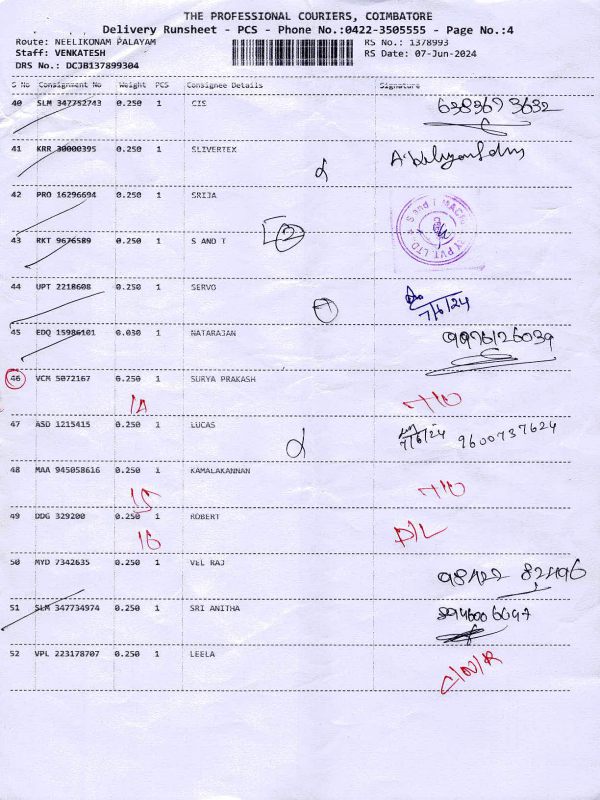 THE PROFESSIONAL COURIERS, COIMBATORE
Delivery Runsheet - PCS - Phone No.:0422-3505555 - Page No.:4
Route: NEELIKONAM PALAYAM RS No.: 1378993
Staff: VENKATESH RS Date: 07-Jun-2024
DRS No.: DCJB137899304
S No Consignment No Weight PCS Consignee Details Signature
40 SLM 347752743 0.250 1 CIS 638369 3632
41 KRR 30000395 0.250 1 SLIVERTEX
42 PRO 16296694 0.250 1 SRIJA
43 RKT 9676589 0.250 1 S AND T 2
44 UPT 2218608 0.250 1 SERVO 7/6/24
45 EDQ 15986101 0.030 1 NATARAJAN 9976126039
46 VCM 5072167 0.250 1 SURYA PRAKASH
14
47 ASD 1215415 0.250 1 LUCAS 7/6/24 9600737624
48 MAA 945058616 0.250 1 KAMALAKANNAN
15
49 DDG 329200 0.250 1 ROBERT D/L
16
50 MYD 7342635 0.250 1 VEL RAJ 98422 82496
51 SLM 347734974 0.250 1 SRI ANITHA 894600 6047
52 VPL 223178707 0.250 1 LEELA C/N/R